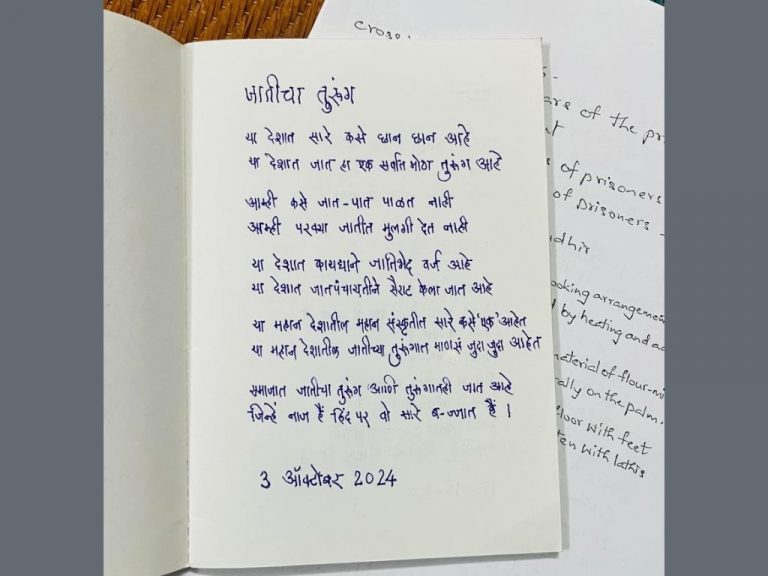 जातीचा तुरुंग
या देशात सारे कसे छान छान आहे
या देशात जात हा एक सर्वात मोठा तुरुंग आहे
आम्ही कसे जात-पात पाळत नाही
आम्ही परक्या जातीत मुलगी देत नाही
या देशात कायद्याने जातिभेद वर्ज आहे
या देशात जातपंचायतीने सैराट केला जात आहे
या महान देशातील महान संस्कृतीत सारे कसे 'एक' आहेत
या महान देशातील जातीच्या तुरुंगात माणसं जुदा जुदा आहेत
समाजात जातीचा तुरुंग आणि तुरुंगातही जात आहे
जिन्हें नाज हैं हिंद पर वो सारे ब-ज्जात हैं।
3 ऑक्टोबर 2024
of the
of prisoners
of prisoners -
arrangement
by heating and
material of flour-
on the palm.
floor with feet
with lathis